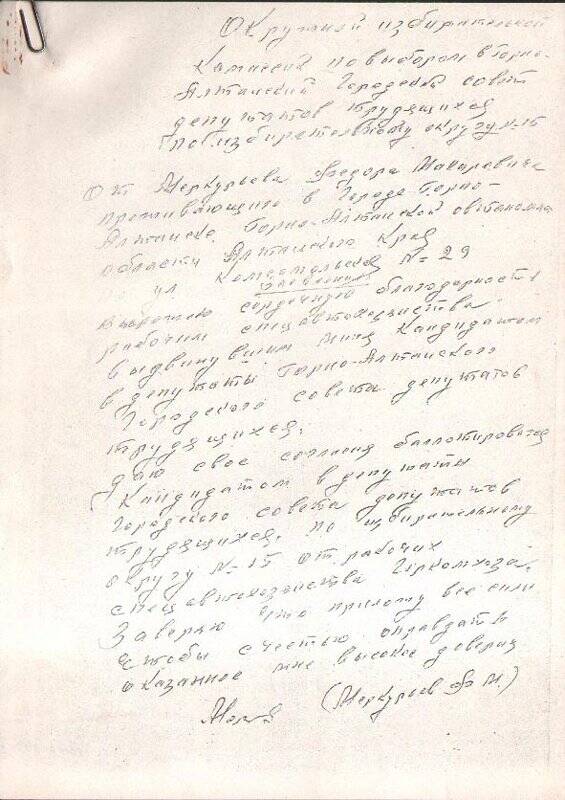 Окружной избирательной
Комиссии по выборам в Горно-
Алтайский Городской совет
депутатов трудящихся
по избирательному округу № 15
От Меркурьева Федора Макаровича
проживающего в Городе Горно-
Алтайске Горно-Алтайской автоном
области Алтайского Края
ул Комсомольская № 29
заявление
Выражаю сердечную благодарность
рабочим спецавтохозяйства
выдвинувшим меня Кандидатом
в депутаты Горно-Алтайского
Городского совета депутатов
трудящихся.
даю свое согласия баллотироватся
Кандидатом в депутаты
Городского совета депутатов
трудящихся. по избирательному
округу № 15 от рабочих
спецавтохозайства Горкомхоза.
Заверяю что приложу все силы
Чтобы с честью оправдать
оказанное мне высокое доверия
(Меркурьев Ф М.)